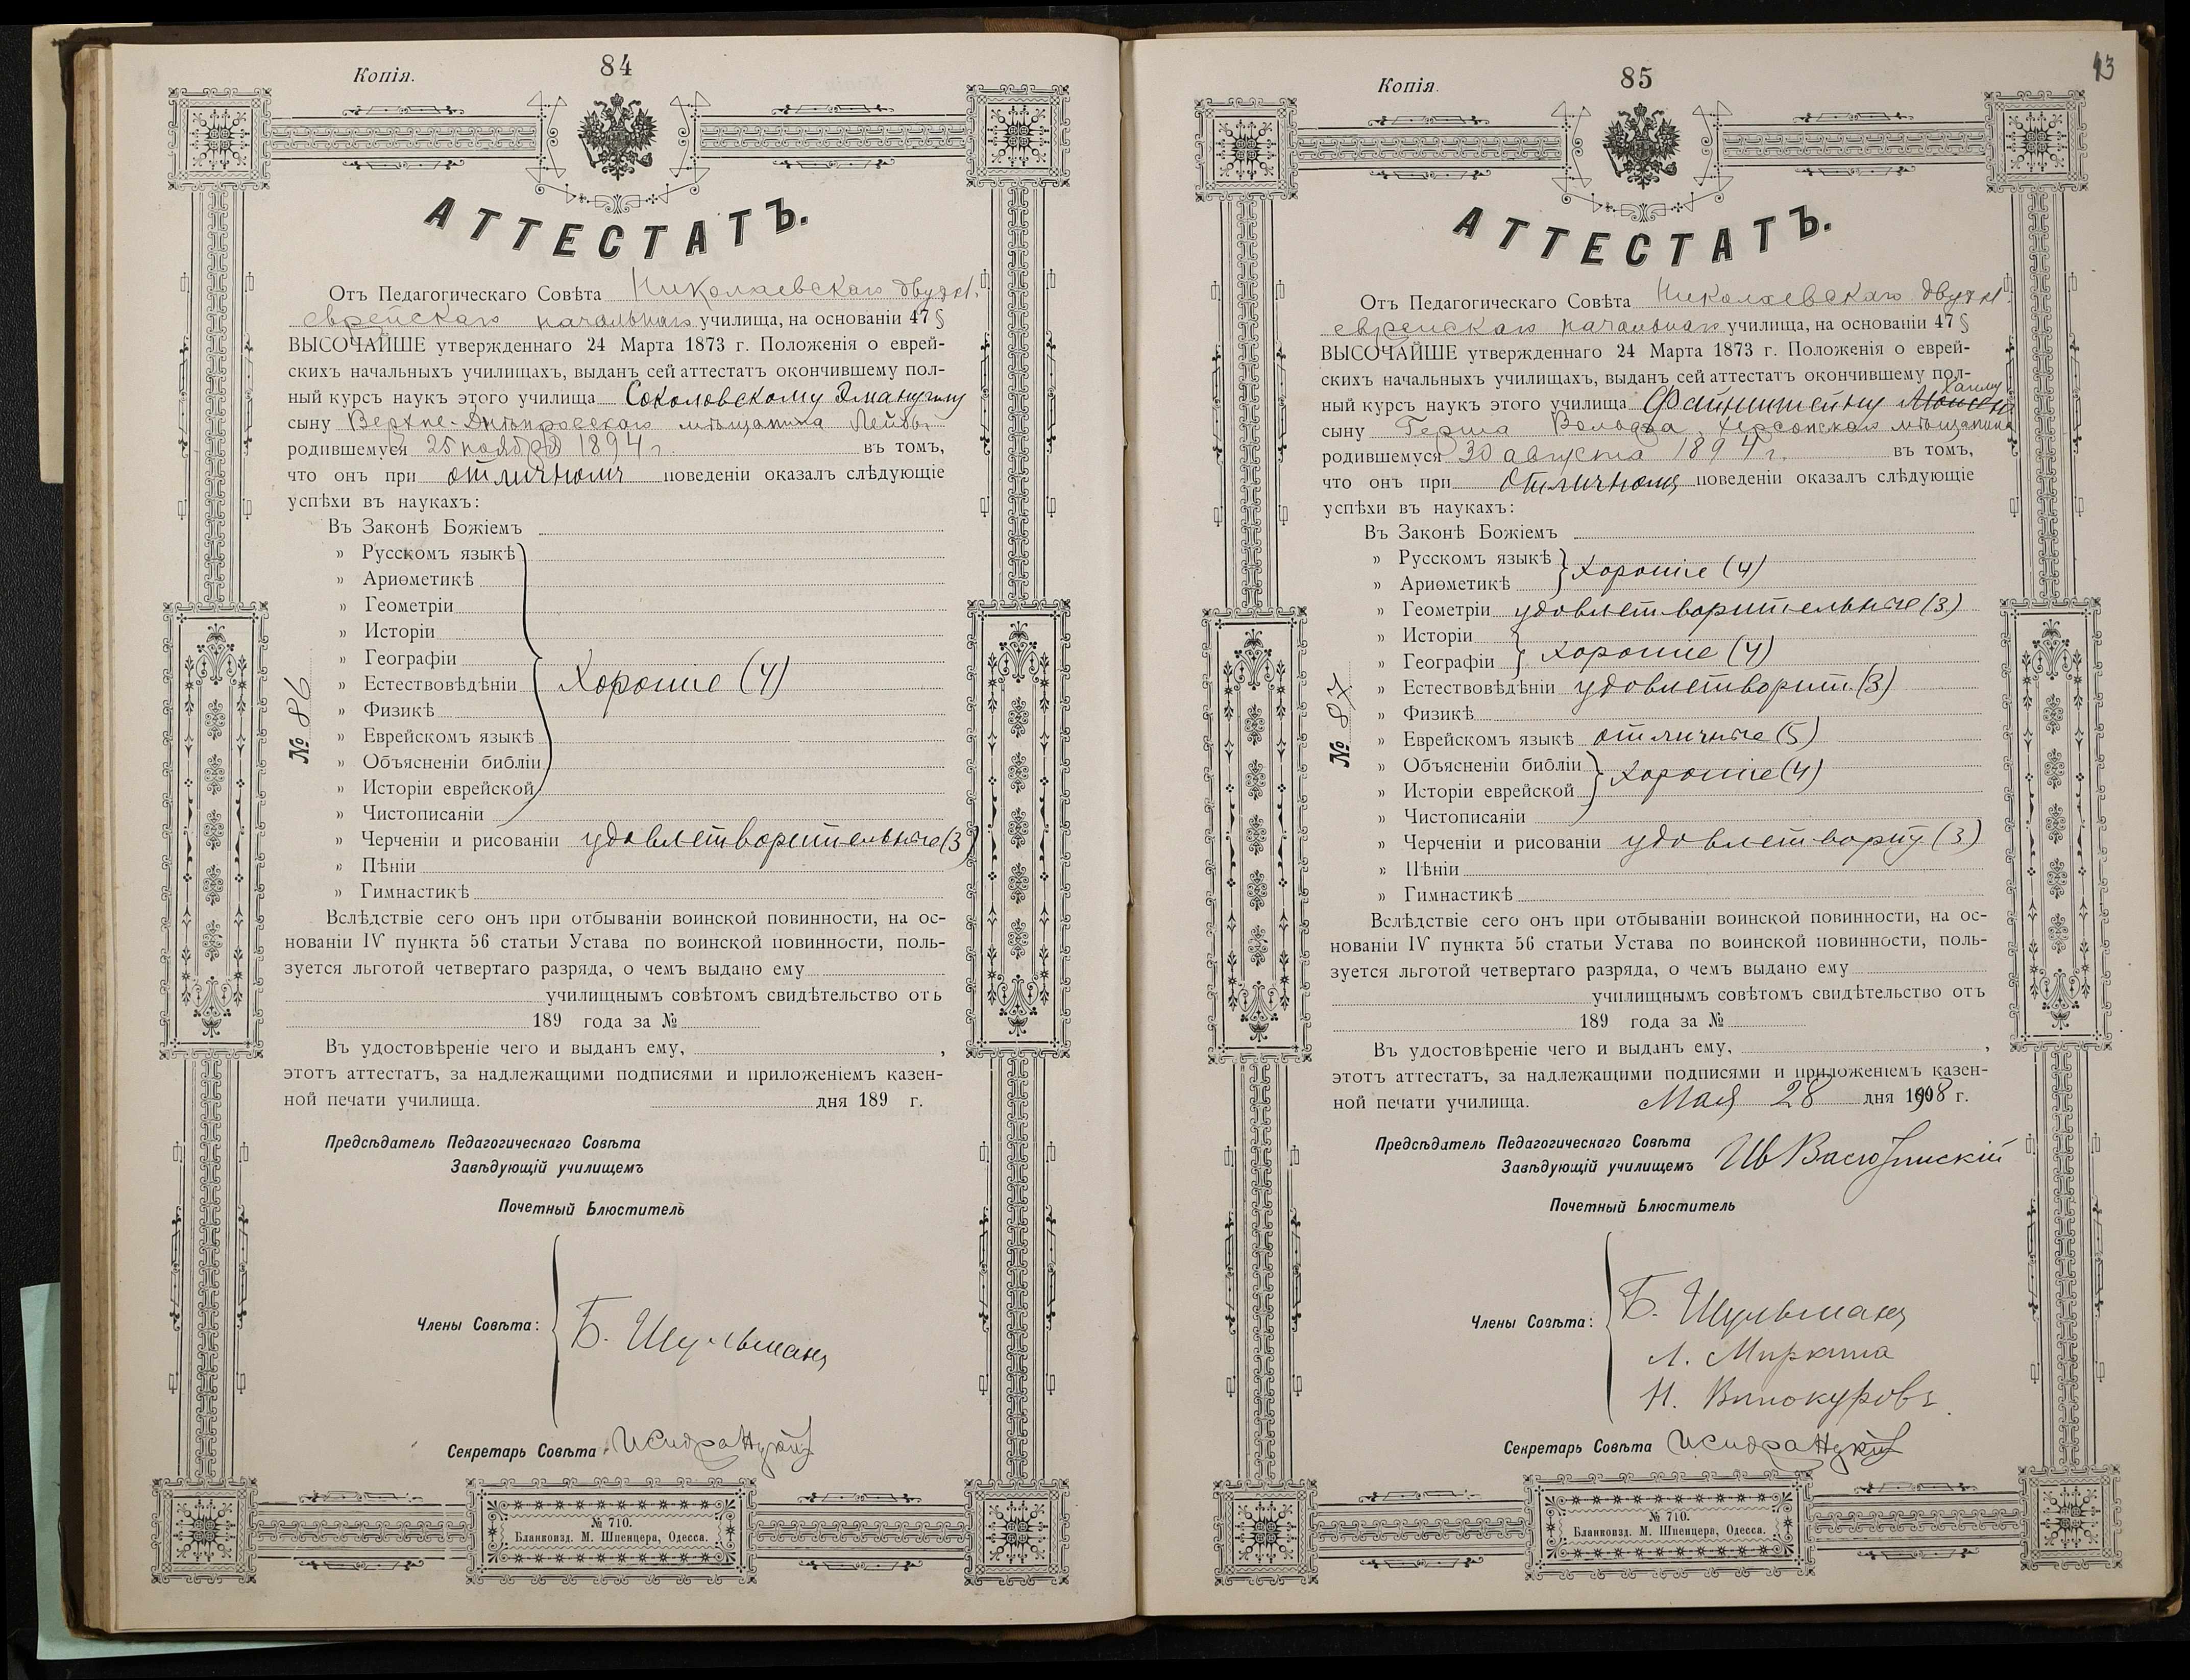 Копія.
84
АТТЕСТАТЪ.
Отъ Педагогическаго Совѣта Николаевскаго двухкл.
еврейскаго начальнаго училища, на основаніи 47 §
ВЫСОЧАЙШЕ утвержденнаго 24 Марта 1873 г. Положенія о еврей-
скихъ начальныхъ училищахъ, выданъ сей аттестатъ окончившему пол-
ный курсъ наукъ этого училища Соколовскому Эмануилу
сыну Верхне-Днѣпровскаго мѣщанина Лейбы
родившемуся 25 ноября 1894 г. въ томъ,
что онъ при отличномъ поведеніи оказалъ слѣдующіе
успѣхи въ наукахъ:
Въ Законѣ Божіемъ
» Русскомъ языкѣ
» Ариѳметикѣ
» Геометріи
» Исторіи
» Географіи
» Естествовѣдѣніи Хорошіе (4)
» Физикѣ
» Еврейскомъ языкѣ
» Объясненіи библіи
» Исторіи еврейской
» Чистописаніи
» Черченіи и рисованіи удовлетворительные (3)
» Пѣніи
» Гимнастикѣ
№ 86
Вслѣдствіе сего онъ при отбываніи воинской повинности, на ос-
нованіи IV пункта 56 статьи Устава по воинской повинности, поль-
зуется льготой четвертаго разряда, о чемъ выдано ему
училищнымъ совѣтомъ свидѣтельство отъ
189 года за №
Въ удостовѣреніе чего и выданъ ему, ,
этотъ аттестатъ, за надлежащими подписями и приложеніемъ казен-
ной печати училища. дня 189 г.
Предсѣдатель Педагогическаго Совѣта
Завѣдующій училищемъ
Почетный Блюститель
Члены Совѣта: Б. Шульманъ
Секретарь Совѣта
№ 710.
Бланкоизд. М. Шпенцера, Одесса.
Копія.
85
43
АТТЕСТАТЪ.
Отъ Педагогическаго Совѣта Николаевскаго двухкл.
еврейскаго начальнаго училища, на основаніи 47 §
ВЫСОЧАЙШЕ утвержденнаго 24 Марта 1873 г. Положенія о еврей-
скихъ начальныхъ училищахъ, выданъ сей аттестатъ окончившему пол-
Хаиму
ный курсъ наукъ этого училища Файнштейну
сыну Герша Вольфа Херсонскаго мѣщанина
родившемуся 30 августа 1894 г. въ томъ,
что онъ при отличномъ поведеніи оказалъ слѣдующіе
успѣхи въ наукахъ:
Въ Законѣ Божіемъ
» Русскомъ языкѣ
» Ариѳметикѣ Хорошіе (4)
» Геометріи удовлетворительные (3)
» Исторіи
» Географіи Хорошіе (4)
» Естествовѣдѣніи удовлетворит. (3)
» Физикѣ
» Еврейскомъ языкѣ отличные (5)
» Объясненіи библіи
» Исторіи еврейской Хорошіе (4)
» Чистописаніи
» Черченіи и рисованіи удовлетворит (3)
» Пѣніи
» Гимнастикѣ
№ 87
Вслѣдствіе сего онъ при отбываніи воинской повинности, на ос-
нованіи IV пункта 56 статьи Устава по воинской повинности, поль-
зуется льготой четвертаго разряда, о чемъ выдано ему
училищнымъ совѣтомъ свидѣтельство отъ
189 года за №
Въ удостовѣреніе чего и выданъ ему, ,
этотъ аттестатъ, за надлежащими подписями и приложеніемъ казен-
ной печати училища. Мая 28 дня 1908 г.
Предсѣдатель Педагогическаго Совѣта
Завѣдующій училищемъ
Почетный Блюститель
Члены Совѣта: Б. Шульманъ
Л. Миркина
Н. Винокуровъ
Секретарь Совѣта
№ 710.
Бланкоизд. М. Шпенцера, Одесса.